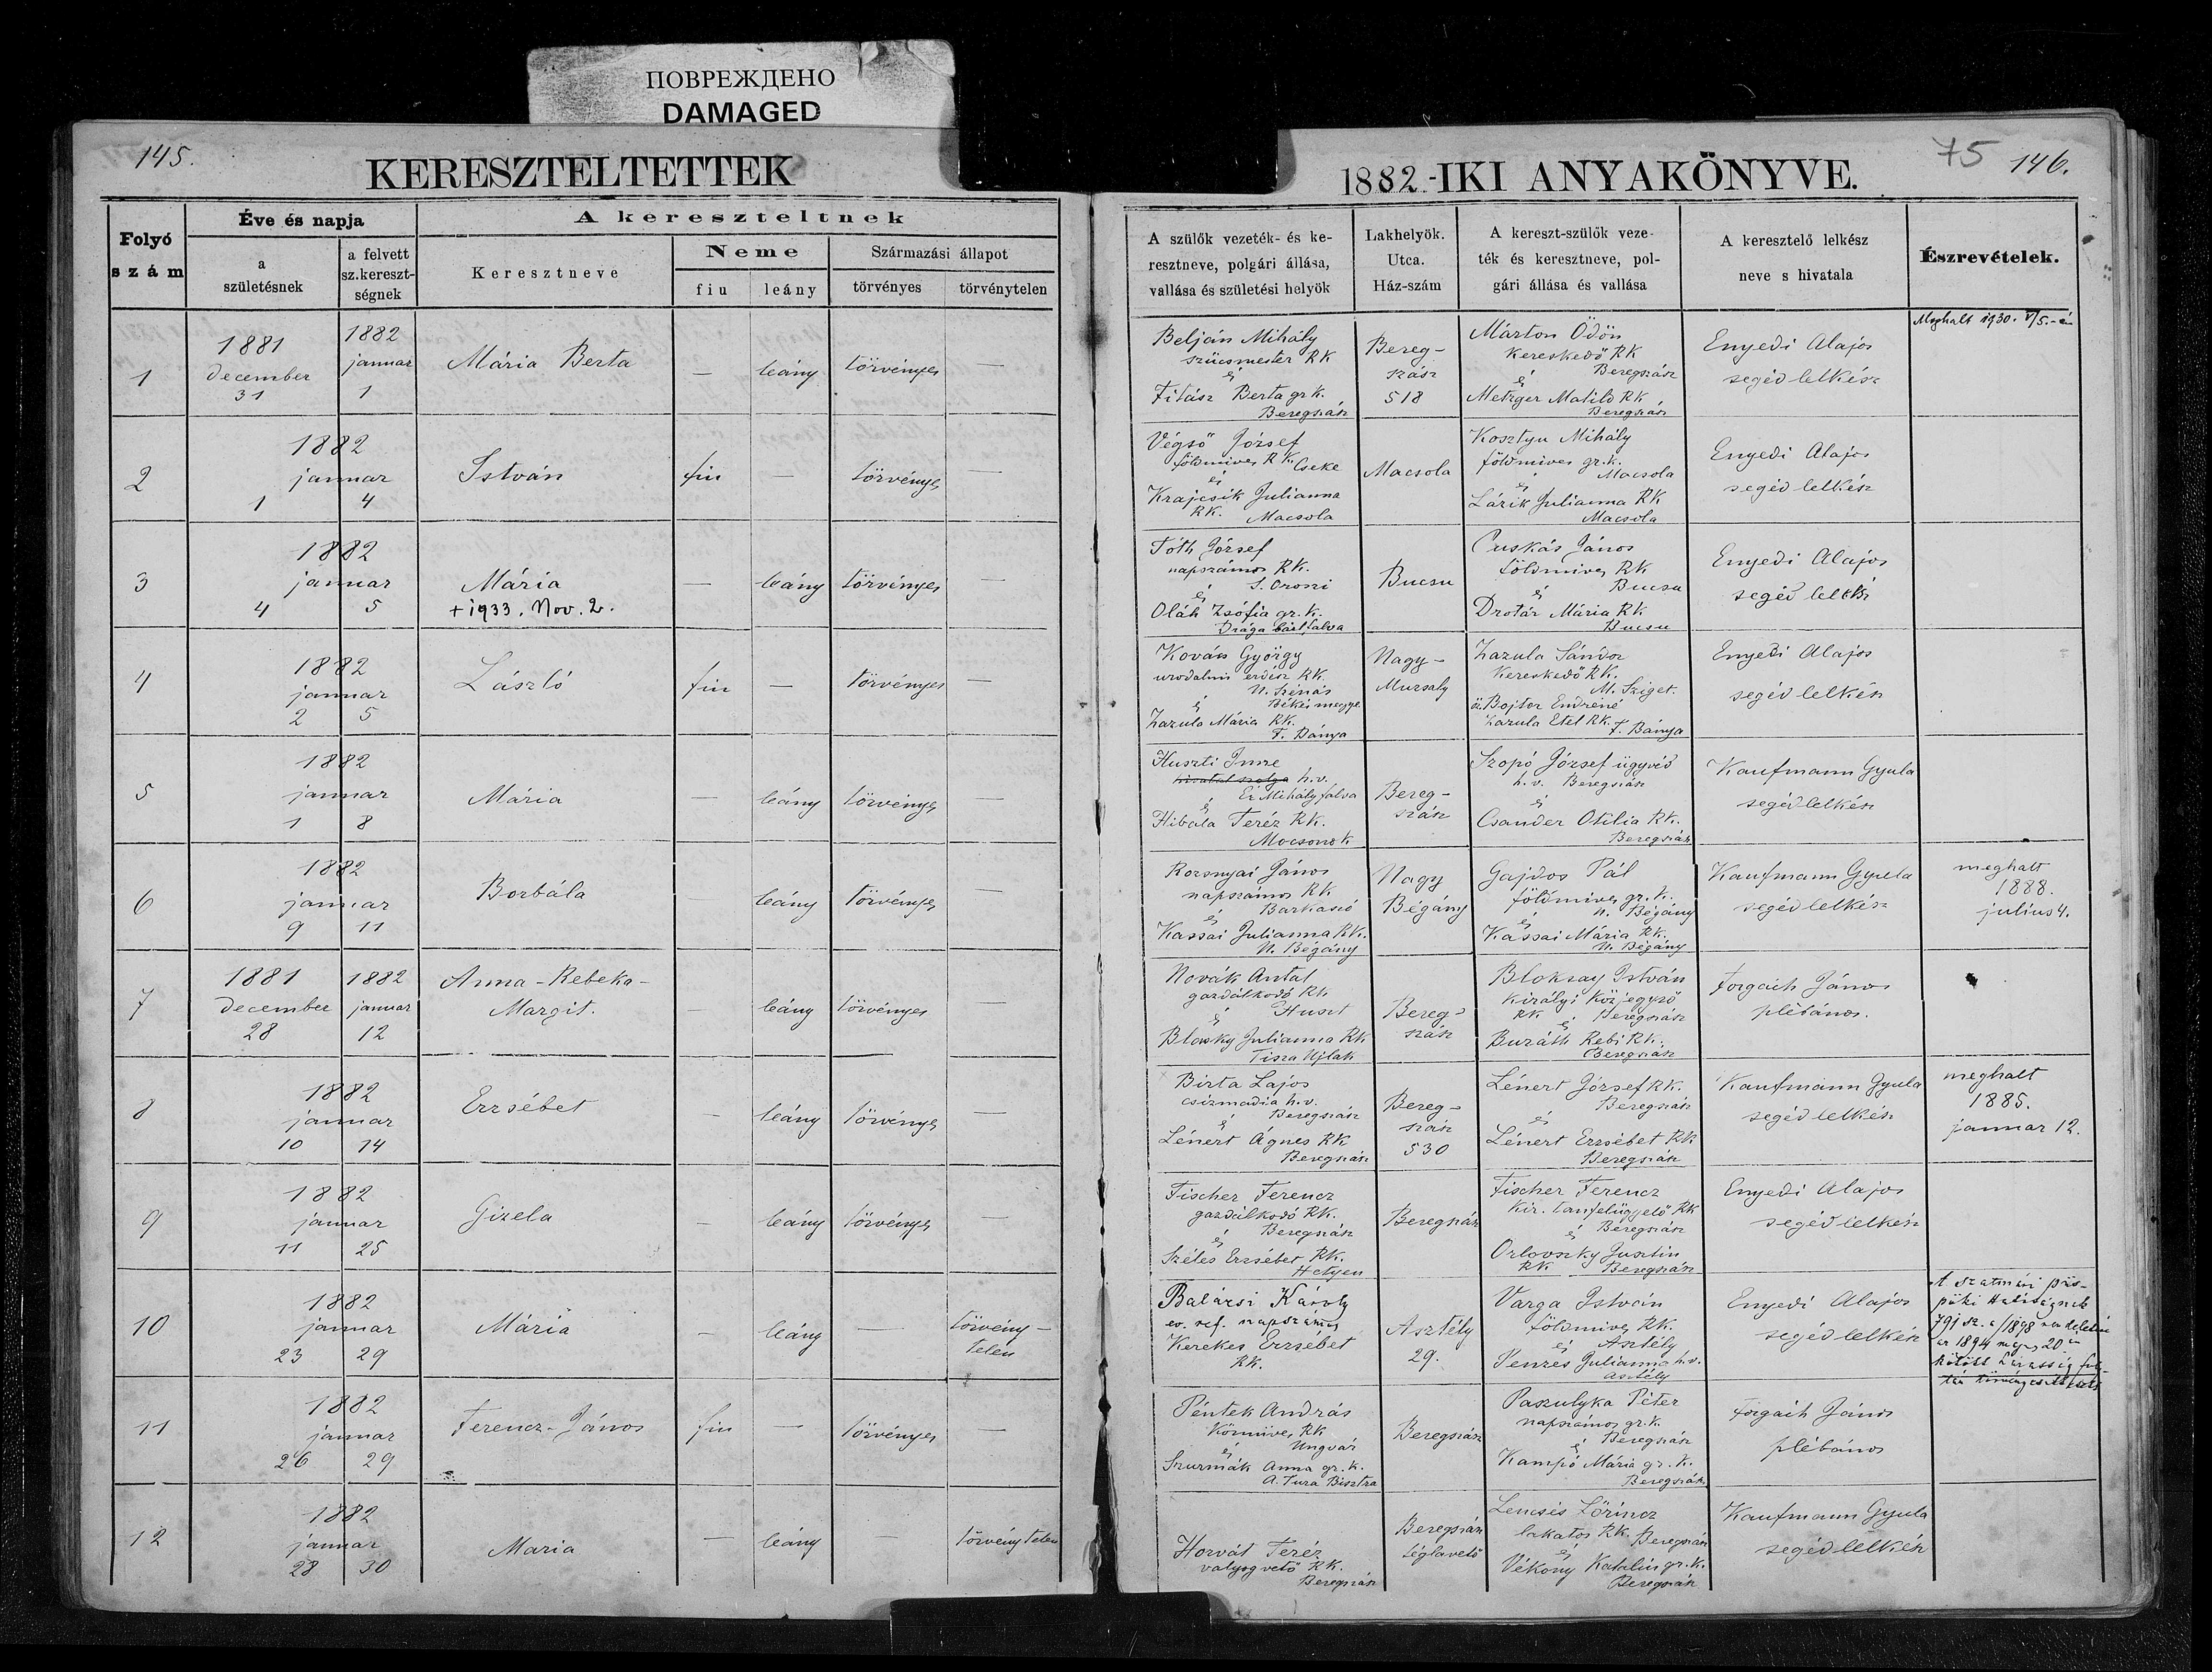 ПОВРЕЖДЕНО
DAMAGED
145.
KERESZTELTETTEK
1882-IKI ANYAKÖNYVE.
75 146.
Folyó szám
Éve és napja
a születésnek
a felvett sz.kereszt-ségnek
A kereszteltnek
Keresztneve
Neme
fiu
leány
Származási állapot
törvényes
törvénytelen
A szülők vezeték- és ke-
resztneve, polgári állása,
vallása és születési helyök
Lakhelyök.
Utca.
Ház-szám
A kereszt-szülők veze-
ték és keresztneve, pol-
gári állása és vallása
A keresztelő lelkész
neve s hivatala
Észrevételek.
1
1881 december 31
1882 januar 1
Mária Berta
— leány törvényes —
Belján Mihály
szücsmester RK
és
Fitász Berta gr k.
Beregszász
Bereg-
szász
518
Márton Ödön
kereskedő RK
Beregszász
és
Metzger Matild RK
Beregszász
Enyedi Alajos
segéd lelkész
Meghalt 1930. V/5.-én
2
1882
januar
1 4
István
fiu — törvényes —
Végső József
földmives RK. Cseke
és
Krajcsik Julianna
RK. Macsola
Macsola
Kosztyu Mihály
földmives gr.k.
Macsola
és
Lázik Julianna RK
Macsola
Enyedi Alajos
segéd lelkész
3
1882
januar
4 5
Mária
+1933. Nov. 2.
— leány törvényes —
Tóth József
napszámos RK.
S. Oroszi
és
Oláh Zsófia gr. k.
Drága bártfalva
Bucsu
Puskás János
földmives RK
Bucsu
és
Drotár Mária RK
Bucsu
Enyedi Alajos
segéd lelkész
4
1882
januar
2 5
László
fiu — törvényes —
Kovács György
urodalmi erdész RK.
N. Szénás
és Békésmegye
Zazula Mária RK.
F. Bánya
Nagy-
Muzsaly
Zazula Sándor
kereskedő RK.
M. Sziget.
öz. Bojtor Endréné
Zazula Etel RK. F. Bánya
Enyedi Alajos
segéd lelkész
5
1882
januar
1 8
Mária
— leány törvényes —
Huszti Imre
hivatal szolga h.v.
Ér Mihályfalva
és
Hibala Teréz RK.
Mocsonok
Bereg-
szász
Szopó József ügyvéd
h.v. Beregszász
és
Csander Otilia RK.
Beregszász
Kaufmann Gyula
segéd lelkész
6
1882
januar
9 11
Borbála
— leány törvényes —
Rozsnyai János
napszámos RK
Barkaszó
és
Kassai Julianna RK.
N. Bégány
Nagy
Bégány
Gajdos Pál
földmives gr. k.
N. Bégány
és
Kassai Mária RK.
N. Bégány
Kaufmann Gyula
segéd lelkész
meghalt
1888.
julius 4.
7
1881 december 28
1882 januar 12
Anna-Rebeka-
Margit.
— leány törvényes —
Novák Antal
gazdálkodó RK
Huszt
és
Bloksay Julianna RK
Tisza Ujlak
Bereg-
szász
Bloksay István
királyi közjegyző
RK és Beregszász
Buzáth Rebi RK.
Beregszász
Forgách János
plébános.
8
1882
januar
10 14
Erzsébet
— leány törvényes —
Birta Lajos
csizmadia h.v.
Beregszász
és
Lénert Ágnes RK
Beregszász
Bereg-
szász
530
Lénert József RK.
Beregszász
és
Lénert Erzsébet RK
Beregszász
Kaufmann Gyula
segéd lelkész
meghalt
1885.
januar 12.
9
1882
januar
11 25
Gizela
— leány törvényes —
Fischer Ferencz
gazdálkodó RK.
Beregszász
és
Széles Erzsébet RK.
Hetyen
Beregszász
Fischer Ferencz
kir. tanfelügyelő RK
és Beregszász
Orlovszky Jusztin
RK Beregszász
Enyedi Alajos
segéd lelkész
10
1882
januar
23 29
Mária
— leány — törvény-
telen
Balázsi Károly
ev. ref. napszámos
Kerekes Erzsébet
RK.
Asztély
29.
Varga István
földmives RK.
és Asztély
Venzes Julianna h.v.
Asztély
Enyedi Alajos
segéd lelkész
A szatmári püs-
pöki Hatóságnak
sz. a/1898
az 1894 20.
kötött házasság
11
1882
januar
26 29
Ferencz-János
fiu — törvényes —
Péntek András
Kőmives RK
Ungvár
és
Szurmák Anna gr. k.
A. Tura Bisztra
Beregszász
Paszulyka Péter
napszámos gr. k.
és Beregszász
Kampó Mária gr. k.
Beregszász
Forgách János
plébános
12
1882
januar
28 30
Maria
— leány törvénytelen
Horvát Teréz
vályogvető RK.
Beregszász
Beregszász
téglavető
Lencsés Lőrincz
lakatos RK. Beregszász
és
Vékony Katalin gr. k.
Beregszász
Kaufmann Gyula
segéd lelkész